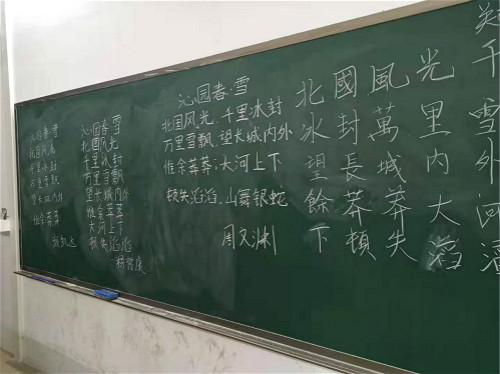 沁园春·雪
北国风光
千里冰封
万里雪飘
望长城内外
惟余莽莽
沁园春·雪
北国风光
千里冰封
万里雪飘
望长城内外
惟余莽莽
大河上下
顿失滔滔
沁园春·雪
北国风光,千里冰封
万里雪飘,望长城内外
惟余莽莽;大河上下
顿失滔滔,山舞银蛇
周又渊
北國風光
冰封萬里
望長城内
餘莽莽大
下頓失滔
千
雪
外
河
滔